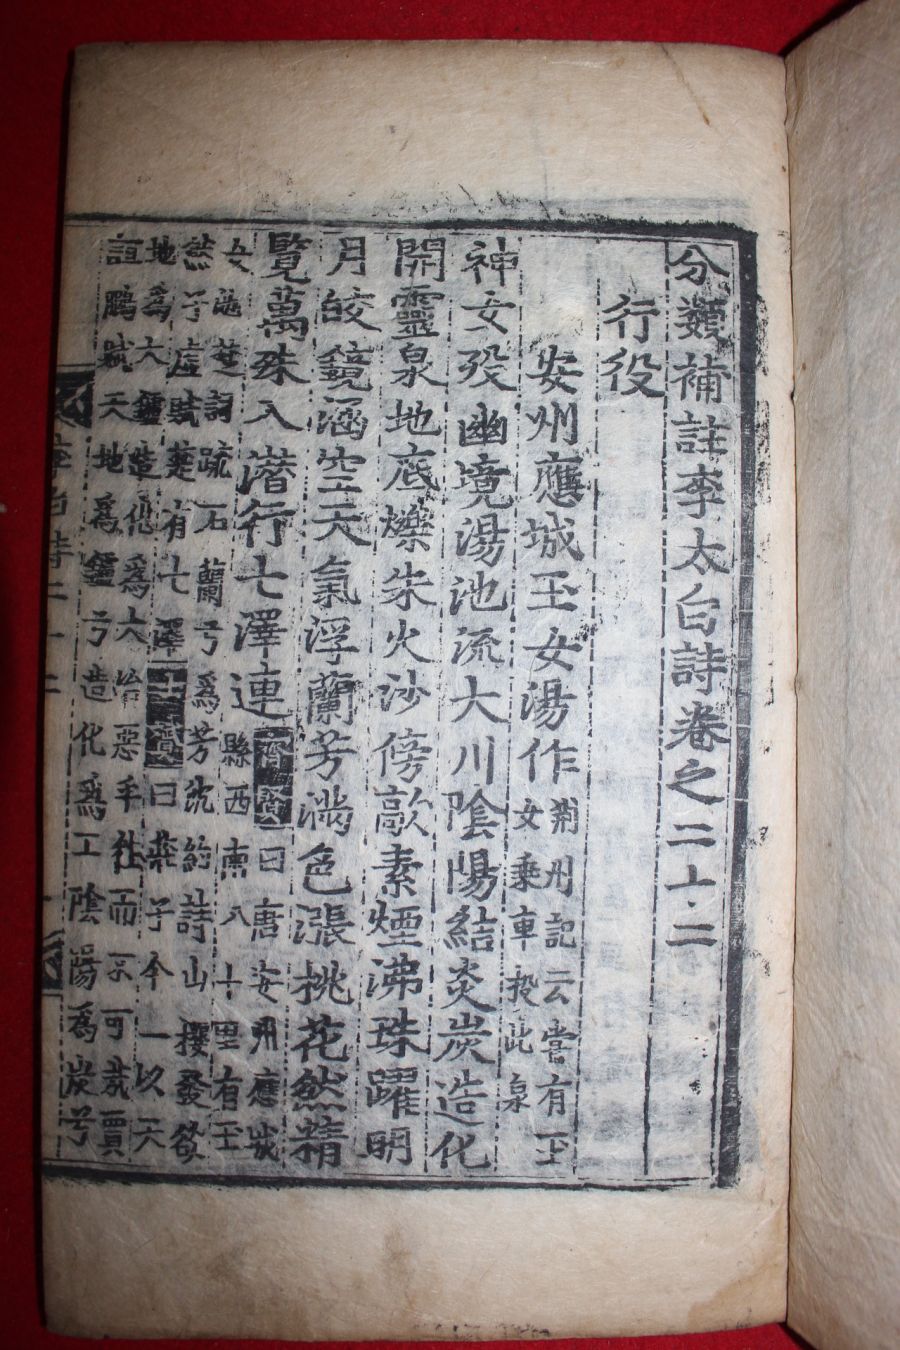 分類補註李太白詩卷之二十二
行役
安州應城玉女湯作 荆州記云嘗有玉
女乘車投此泉
神女歿幽境湯池流大川陰陽結炎炭造化
開靈泉地底爍朱火沙傍歊素煙沸珠躍明
月皎鏡涵空天氣浮蘭芳滿色漲桃花然精
覽萬殊入潛行七澤連 齊賢曰唐安州應城
縣西南八十里有玉
女湯楚詞疏石蘭兮爲芳沈約詩山櫻發欲
然子虛賦楚有七澤士贇曰莊子今一以天
地爲大鑪造化爲大冶惡乎往而不可哉賈
誼鵬賦天地爲鑪兮造化爲工陰陽爲炭兮